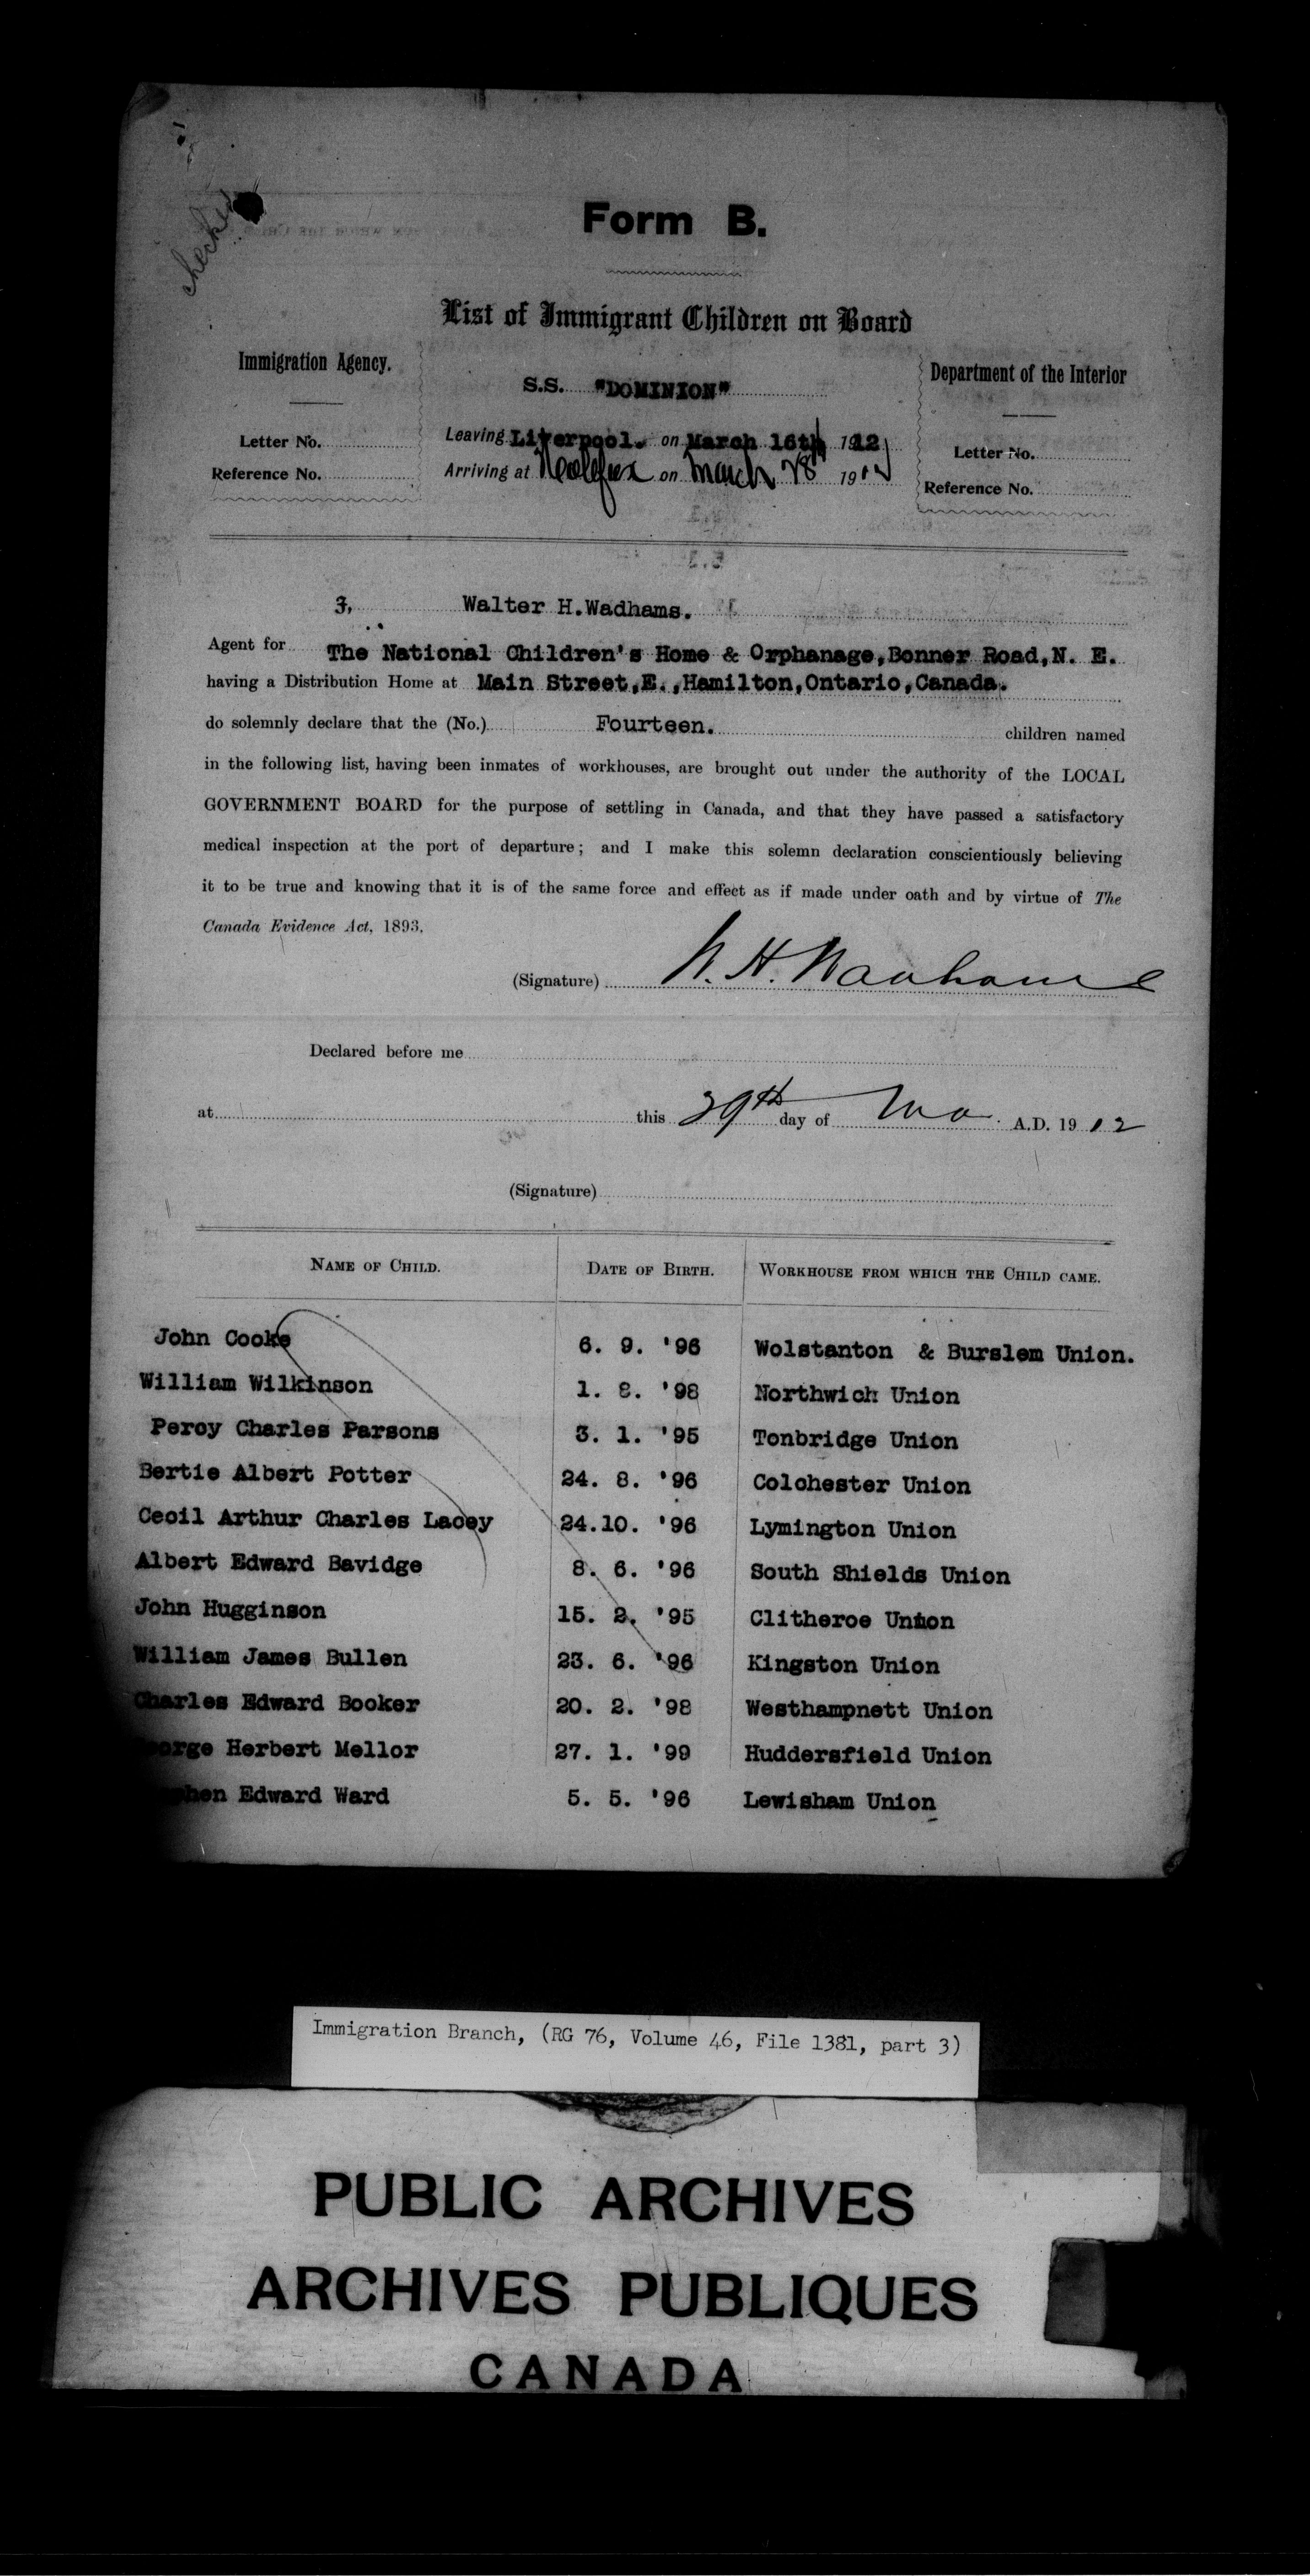 checked
Form B.
List of Immigrant Children on Board
Immigration Agency.
Department of the Interior
S.S. "DOMINION"
Letter No.
Leaving Liverpool. on March 16th 1912
Letter No.
Reference No.
Arriving at Halifax on March 28 1912
Reference No.
I, Walter H.Wadhams.
Agent for The National Children's Home & Orphanage,Bonner Road,N. E.
having a Distribution Home at Main Street,E.,Hamilton,Ontario,Canada.
do solemnly declare that the (No.) Fourteen. children named
in the following list, having been inmates of workhouses, are brought out under the authority of the LOCAL
GOVERNMENT BOARD for the purpose of settling in Canada, and that they have passed a satisfactory
medical inspection at the port of departure; and I make this solemn declaration conscientiously believing
it to be true and knowing that it is of the same force and effect as if made under oath and by virtue of The
Canada Evidence Act, 1893.
(Signature) W. H. Wadhams
Declared before me
at this 29th day of Mar. A.D. 1912
(Signature)
NAME OF CHILD. DATE OF BIRTH. WORKHOUSE FROM WHICH THE CHILD CAME.
John Cooke 6. 9. '96 Wolstanton & Burslem Union.
William Wilkinson 1. 8. '98 Northwich Union
Percy Charles Parsons 3. 1. '95 Tonbridge Union
Bertie Albert Potter 24. 8. '96 Colchester Union
Cecil Arthur Charles Lacey 24.10. '96 Lymington Union
Albert Edward Bavidge 8. 6. '96 South Shields Union
John Hugginson 15. 2. '95 Clitheroe Union
William James Bullen 23. 6. '96 Kingston Union
Charles Edward Booker 20. 2. '98 Westhampnett Union
George Herbert Mellor 27. 1. '99 Huddersfield Union
Edward Ward 5. 5. '96 Lewisham Union
Immigration Branch, (RG 76, Volume 46, File 1381, part 3)
PUBLIC ARCHIVES
ARCHIVES PUBLIQUES
CANADA